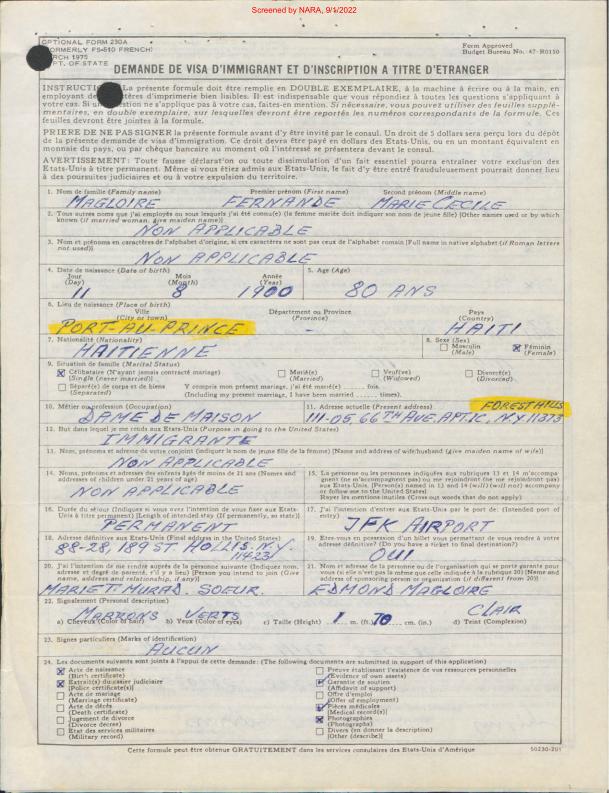 Screened by NARA, 9/1/2022
OPTIONAL FORM 230A
FORMERLY FS-510 FRENCH)
MARCH 1975
DEPT. OF STATE
Form Approved
Budget Bureau No. 47-R0150
DEMANDE DE VISA D'IMMIGRANT ET D'INSCRIPTION A TITRE D'ETRANGER
INSTRUCTI La présente formule doit être remplie en DOUBLE EXEMPLAIRE, à la machine à écrire ou à la main, en
employant de tères d'imprimerie bien lisibles. Il est indispensable que vous répondiez à toutes les questions s'appliquant à
votre cas. Si un estion ne s'applique pas à votre cas, faites-en mention. Si nécessaire, vous pouvez utiliser des feuilles supplé-
mentaires, en double exemplaire, sur lesquelles devront être reportés les numéros correspondants de la formule. Ces
feuilles devront être jointes à la formule.
PRIERE DE NE PAS SIGNER la présente formule avant d'y être invité par le consul. Un droit de 5 dollars sera perçu lors du dépôt
de la présente demande de visa d'immigrant. Ce droit devra être payé en dollars des Etats-Unis, ou en un montant équivalent en
monnaie du pays, ou par chèque bancaire au moment où l'intéressé se présentera devant le consul.
AVERTISSEMENT: Toute fausse déclaration ou toute dissimulation d'un fait essentiel pourra entraîner votre exclusion des
Etats-Unis à titre permanent. Même si vous étiez admis aux Etats-Unis, le fait d'y être entré frauduleusement pourrait donner lieu
à des poursuites judiciaires ou à votre expulsion du territoire.
1. Nom de famille (Family name) Premier prénom (First name) Second prénom (Middle name)
MAGLOIRE FERNANDE MARIE CECILE
2. Tous autres noms que j'ai employés ou sous lesquels j'ai été connu(e) (la femme mariée doit indiquer son nom de jeune fille) [Other names used or by which
known (if married woman, give maiden name)]
NON APPLICABLE
3. Nom et prénoms en caractères de l'alphabet d'origine, si ces caractères ne sont pas ceux de l'alphabet romain [Full name in native alphabet (if Roman letters
not used)]
NON APPLICABLE
4. Date de naissance (Date of birth) 5. Age (Age)
Jour Mois Année
(Day) (Month) (Year)
11 8 1900 80 ANS
6. Lieu de naissance (Place of birth)
Ville Département ou Province Pays
(City or town) (Province) (Country)
PORT-AU-PRINCE - HAITI
7. Nationalité (Nationality) 8. Sexe (Sex)
HAITIENNE
Masculin Féminin
(Male) (Female)
9. Situation de famille (Marital Status)
Célibataire (N'ayant jamais contracté mariage) Marié(e) Veuf(ve) Divorcé(e)
(Single (never married)) (Married) (Widowed) (Divorced)
Séparé(e) de corps et de biens Y compris mon présent mariage, j'ai été marié(e) ..... fois.
(Separated) (Including my present marriage, I have been married ...... times).
10. Métier ou profession (Occupation) 11. Adresse actuelle (Present address) FOREST HILLS
DAME DE MAISON 111-05, 66TH AVE, APT.1C, N.Y 11375
12. But dans lequel je me rends aux Etats-Unis (Purpose in going to the United States)
IMMIGRANTE
13. Nom, prénoms et adresse de votre conjoint (indiquer le nom de jeune fille de la femme) [Name and address of wife/husband (give maiden name of wife)]
NON APPLICABLE
14. Noms, prénoms et adresses des enfants âgés de moins de 21 ans (Names and
addresses of children under 21 years of age)
NON APPLICABLE
15. La personne ou les personnes indiquées aux rubriques 13 et 14 m'accompa-
gnent (ne m'accompagnent pas) ou me rejoindront (ne me rejoindront pas)
aux Etats-Unis. [Person(s) named in 13 and 14 (will) (will not) accompany
or follow me to the United States]
Rayer les mentions inutiles (Cross out words that do not apply)
16. Durée du séjour (Indiquez si vous avez l'intention de vous fixer aux Etats-
Unis à titre permanent) [Length of intended stay (If permanently, so state)]
PERMANENT
17. J'ai l'intention d'entrer aux Etats-Unis par le port de: (Intended port of
entry)
JFK AIRPORT
18. Adresse définitive aux Etats-Unis (Final address in the United States)
88-28, 189 ST HOLLIS. N.Y.
11423
19. Etes-vous en possession d'un billet vous permettant de vous rendre à votre
adresse définitive? (Do you have a ticket to final destination?)
OUI
20. J'ai l'intention de me rendre auprès de la personne suivante (Indiquez nom,
adresse et degré de parenté, s'il y a lieu) [Person you intend to join (Give
name, address and relationship, if any)]
MARIE T. MURAD. SOEUR.
21. Nom et adresse de la personne ou de l'organisation qui se porte garante pour
vous (si elle n'est pas la même que celle indiquée à la rubrique 20) [Name and
address of sponsoring person or organization (if different from 20)]
EDMOND MAGLOIRE
22. Signalement (Personal description)
MARRONS VERTS 1 70 CLAIR
a) Cheveux (Color of hair) b) Yeux (Color of eyes) c) Taille (Height) .... m. (ft.) .... cm. (in.) d) Teint (Complexion)
23. Signes particuliers (Marks of identification)
AUCUN
24. Les documents suivants sont joints à l'appui de cette demande: (The following documents are submitted in support of this application)
Acte de naissance
(Birth certificate)
Extrait(s) du casier judiciaire
(Police certificate(s))
Acte de mariage
(Marriage certificate)
Acte de décès
(Death certificate)
Jugement de divorce
(Divorce decree)
Etat des services militaires
(Military record)
Preuve établissant l'existence de vos ressources personnelles
(Evidence of own assets)
Garantie de soutien
(Affidavit of support)
Offre d'emploi
(Offer of employment)
Pièces médicales
(Medical record(s))
Photographies
(Photographs)
Divers (en donner la description)
[Other (describe)]
Cette formule peut être obtenue GRATUITEMENT dans les services consulaires des Etats-Unis d'Amérique 50230-201